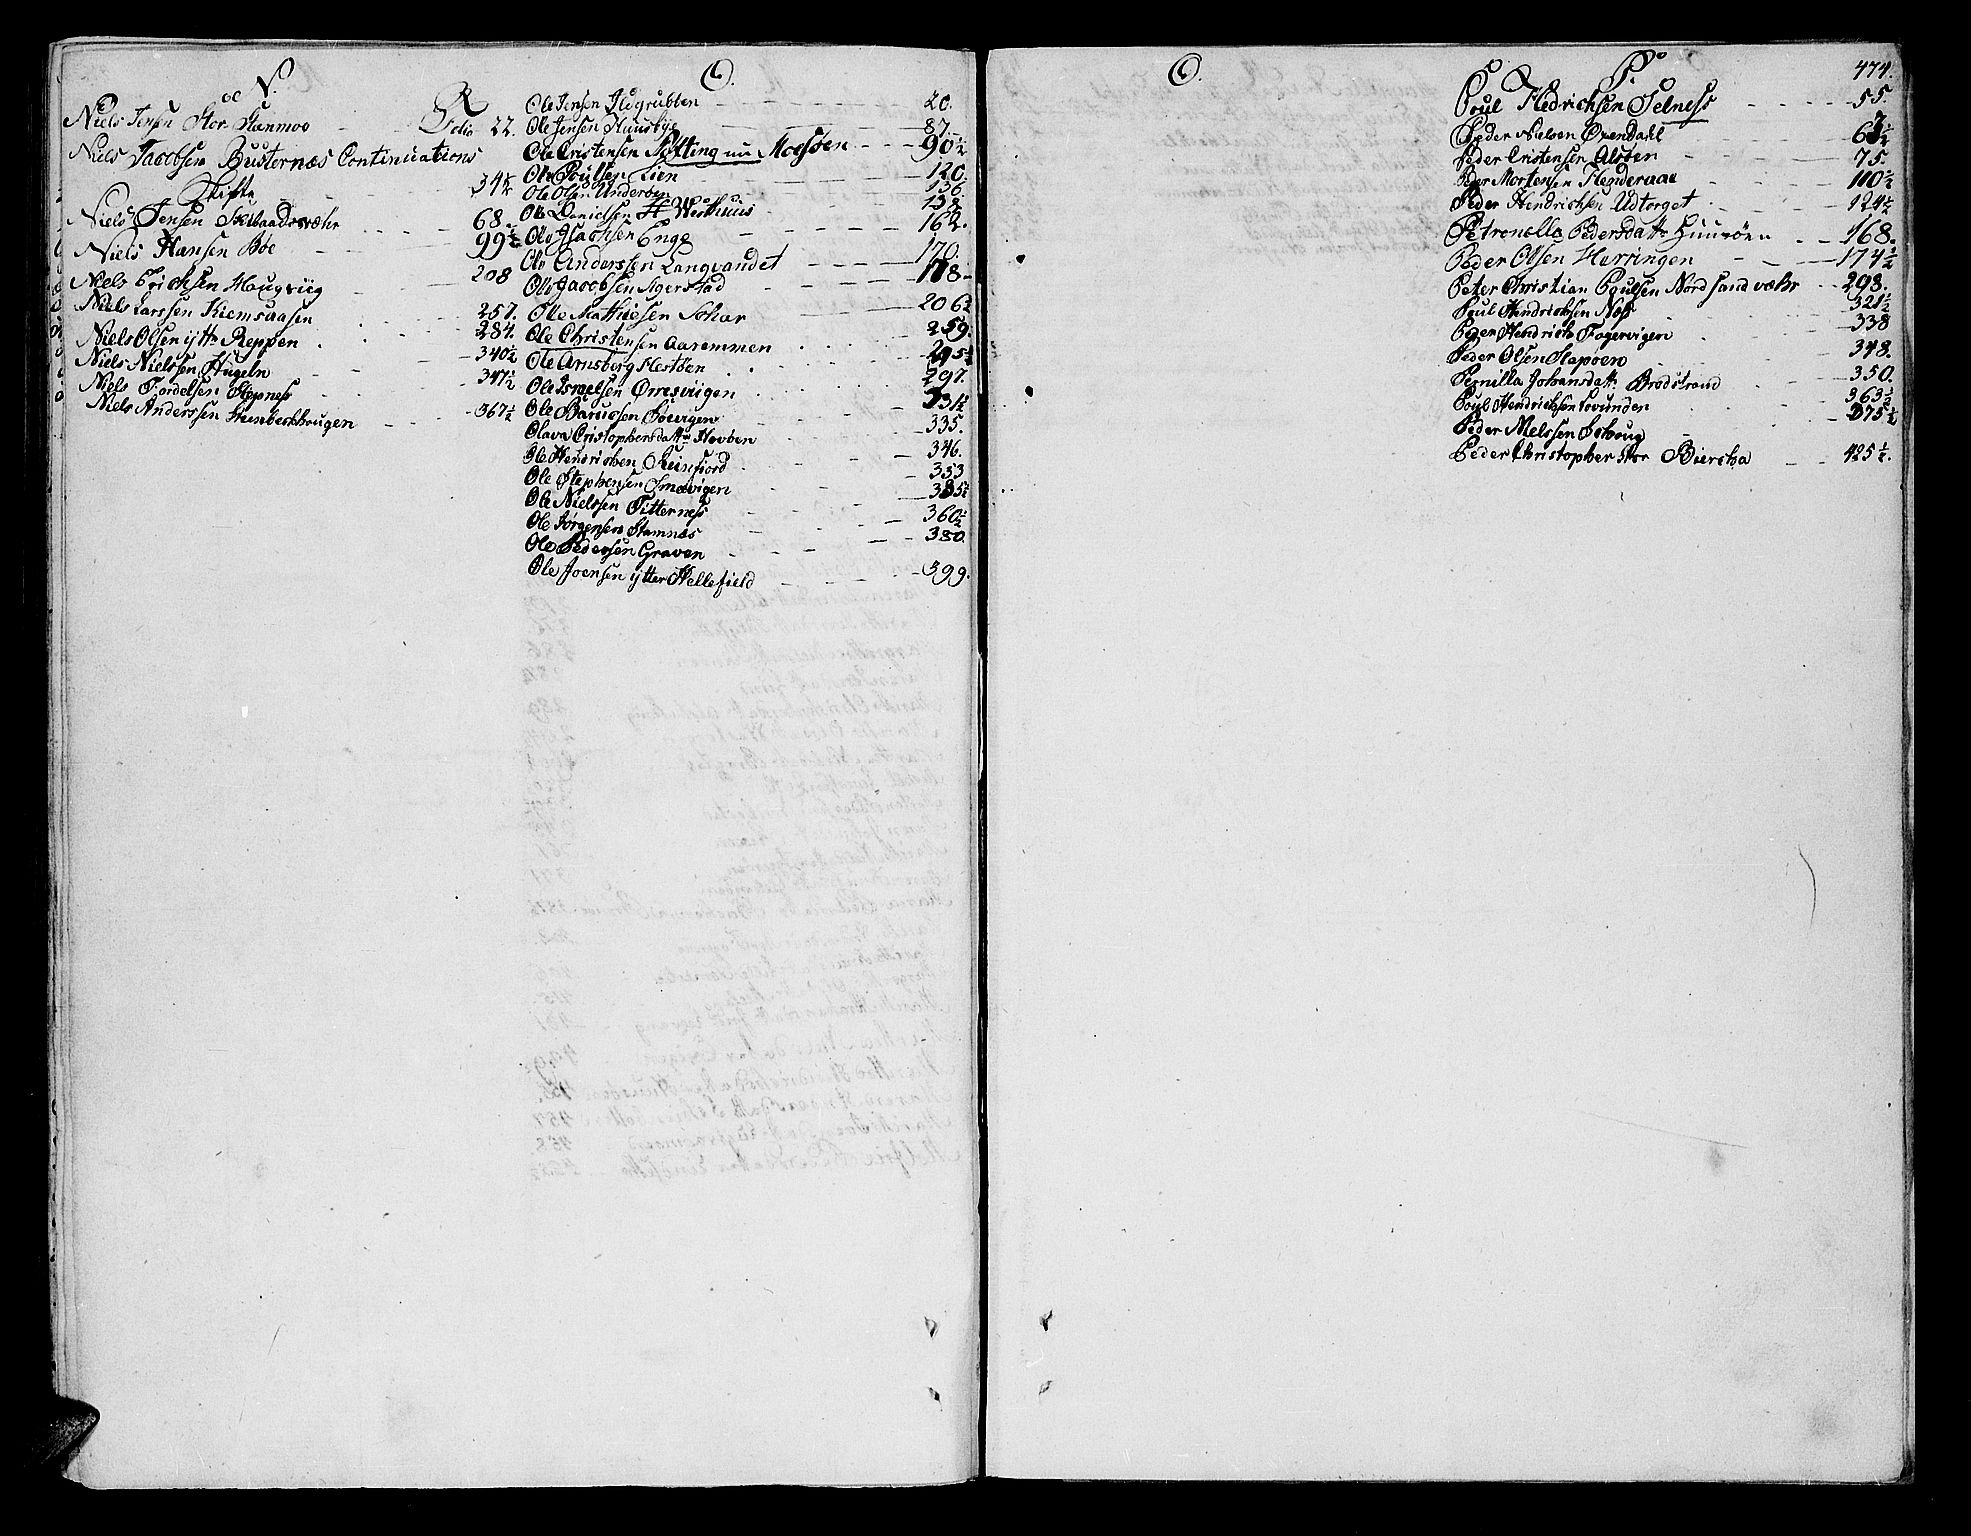 N.
Niels Jensen Stor Stanmoe Folio 22.
Niels Jacobsen Busternæs Continuations
Skifte 34½
Niels Jensen Skibaadsværhr 68.
Niels Hansen Bøe 99½
Niels Erichsen Haugviig 208
Niels Larssen Kiemsaasen 257.
Niels Olsen ytt. Reppen 284.
Niels Nielssen Hugeln 340½
Niels Tordelsen Stepness 347½
Niels Anderssen 367½
O.
Ole Jensen Ildgrubben 20.
Ole Jensen Huusbye 87
Ole Cristensen Møtting nu Moesøen 90½
Ole Poulsen Lien 120
Ole Olsen Undersøen 136
Ole Danielsen Westhuus 138
Ole Isachsen Enge 162.
Ole Anderssen Langvandet 170.
Ole Jacobsen Agerstad 178
Ole Mathiesen Sohar 206½
Ole Christensen Aaremmen 259
Ole Arnsborg Hestøen
Ole Israelsen Ørresviigen 297.
Ole Barussen Søevigen 331½
Olava Cristophersdatt. Hevøen 335.
Ole Hendrichsen Reinfiord 346.
Ole Stephensen Smævigen 353
Ole Nielssen Titterness
Ole Jørgensen Stamnæs 360½
Ole Pedersen Graven 380.
Ole Joensen ytter Hellefield 399.
O.
P.
474.
Poul Hedrichsen Selness 55.
Peder Nielsen Øxendahl
Peder Cristensen Alsøen 75.
Peder Mortensen Henderaae 110½
Peder Hendrichsen Udtorget 124½
Petronella Pedersdatt. Huusøen 168.
Peder Olsen Herringen 174½
Peter Christian Poulsen Nord Sandværhr 298.
Poul Hendrichsen Næs 321½
Peder Hendrichs. Fagervigen 338
Peder Olsen Slapøen 348.
Pernilla Johansdatt. Brødstrand 350.
Poul Hendrichsen Lovunden 363½
Peder Nielssen 375½
Peder Christopher Stor Biersta 425½.